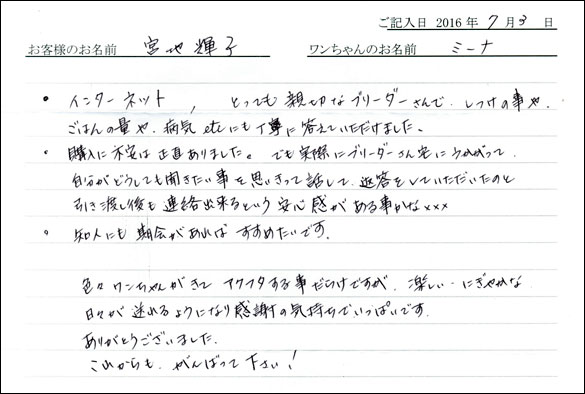 ご記入日 2016 年 7 月 3 日
お客様のお名前 宮地 輝子 ワンちゃんのお名前 ミーナ
• インターネット , とっても 親切なブリーダーさんで、しつけの事や、
ごはんの量や、病気 etcにも丁寧に答えていただけました。
• 購入に不安は正直ありました。でも実際にブリーダーさん宅にうかがって、
自分がどうしても聞きたい事を思いきって話して、返答をしていただいたのと
引き渡し後も連絡出来るという安心感がある事かな×××
• 知人にも機会があればすすめたいです。
色々ワンちゃんがきてアタフタする事だらけですが、楽しい…にぎやかな
日々が送れるようになり感謝の気持ちでいっぱいです。
ありがとうございました。
これからも、がんばって下さい!